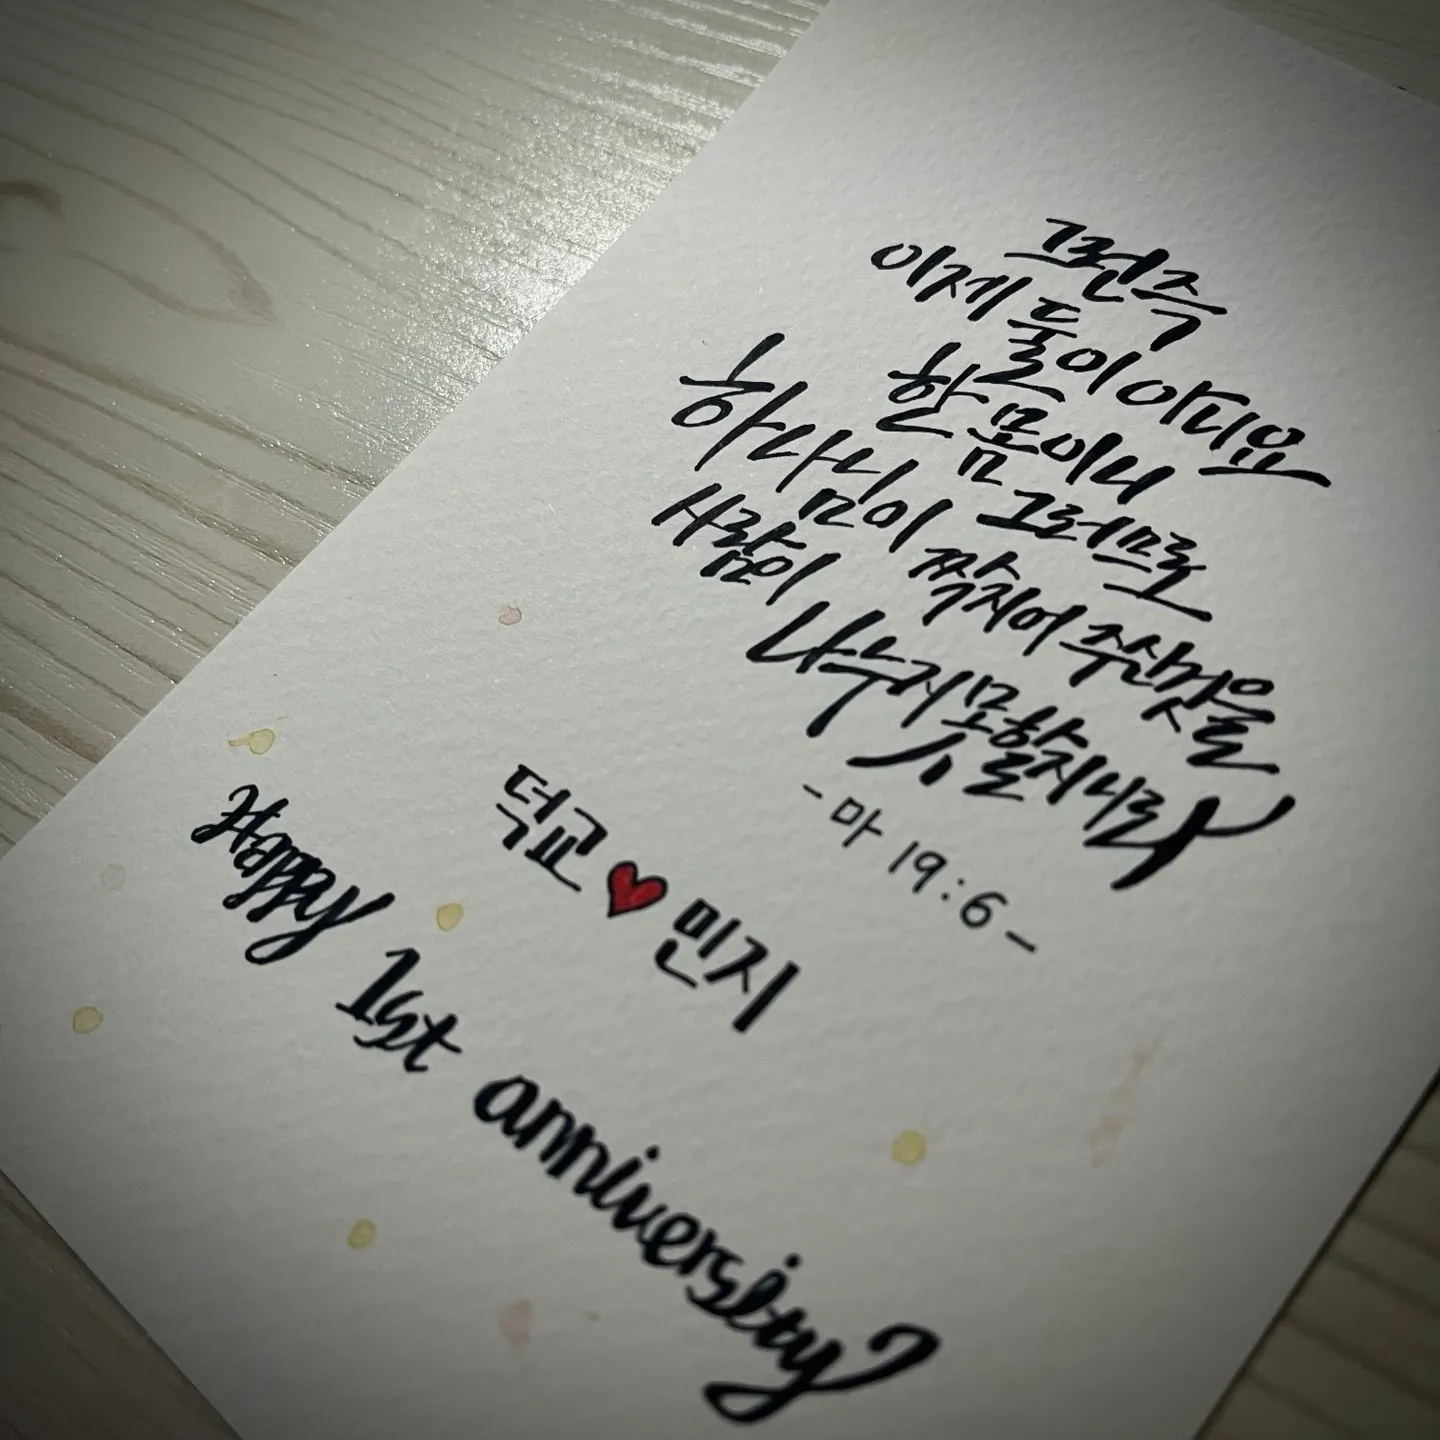 그런즉
이제 둘이 아니요
한 몸이니 그러므로
하나님이 짝지어 주신것을
사람이 나누지 못할지니라
- 마 19:6 -
덕교 ♥ 민지
Happy 1st anniversity